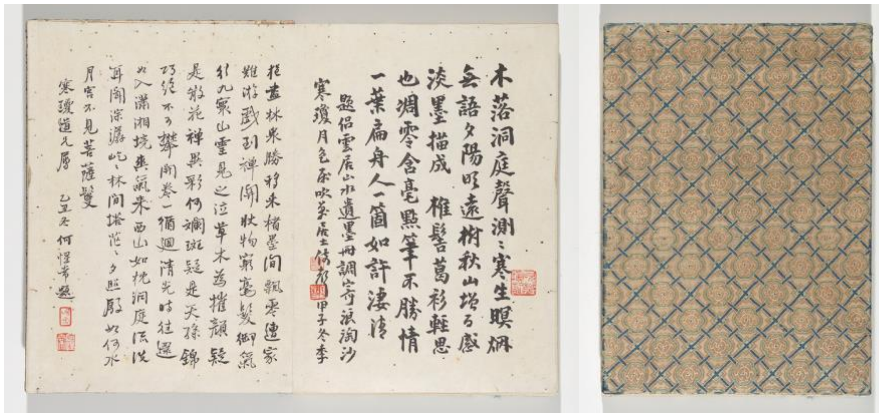 木落洞庭聲測〻寒生暝烟
無語夕陽明遠樹秋山增百感
淡墨描成 椎髻葛衫輕思
也凋零含毫點筆不勝情
一葉扁舟人一箇如許淒清
題侶雲居山水遺墨冊調寄浪淘沙
寒瓊月色 吹萬居士 甲子冬季
拄盡林泉勝 將朱楮墨間飄零遭家
難游戲到禪關狀物窮毫髮御氣
行九寰山靈見之泣草木為摧顏疑
是散花禪異彩何斕斑疑是天孫錦
巧絕不可攀開卷一循迴清光時往還
如入瀟湘境爽氣來西山如枕洞庭流洗
耳聞淙潺屹〻林間塔茫〻夕照殿如何水
月宮不見菩薩鬘
寒瓊道兄屬 乙丑冬 何 題